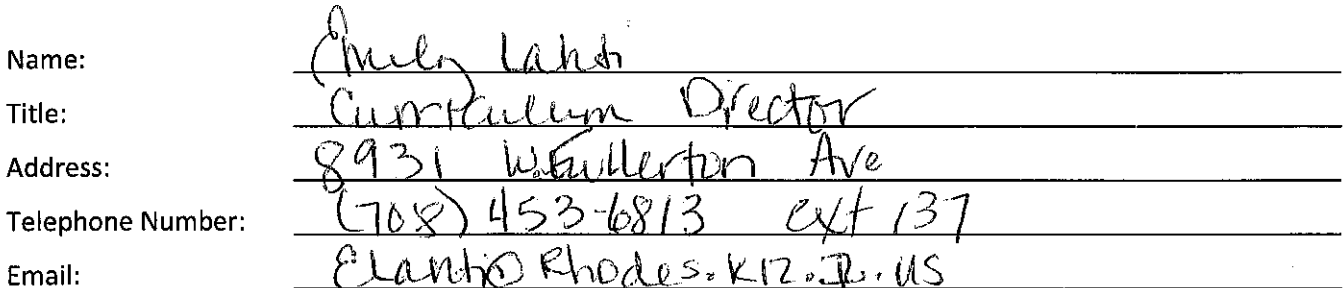 Name: Emily Lahti
Title: Curriculum Director
Address: 8931 W. Fullerton Ave
Telephone Number: (708) 453-6813 ext 137
Email: Elahti@Rhodes.K12.IL.US